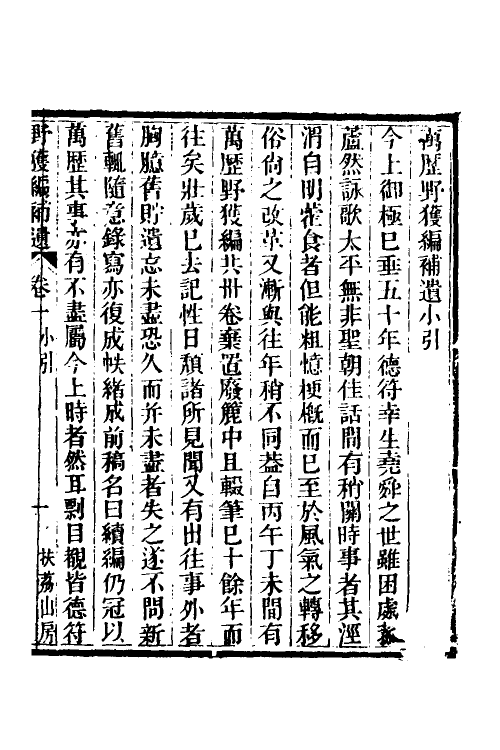 萬歷野獲編補遺小引
今上御極已垂五十年德符幸生堯舜之世雖困處
蘆然詠歌太平無非聖朝佳話間有稍關時事者其涇
渭自明藿食者但能粗憶梗概而已至於風氣之轉移
俗尚之改革又漸與往年稍不同葢自丙午丁未間有
萬歷野獲編共卅卷棄置廢簏中且輟筆已十餘年而
往矣壯歲已去記性日頹諸所見聞又有出往事外者
胸臆舊貯遺忘未盡恐久而并未盡者失之遂不問新
舊輒隨意錄寫亦復成帙緒成前稿名曰續編仍冠以
萬歷其事亦有不盡屬今上時者然耳剽目覩皆德符
野獲編補遺 卷一 小引 一 扶荔山房